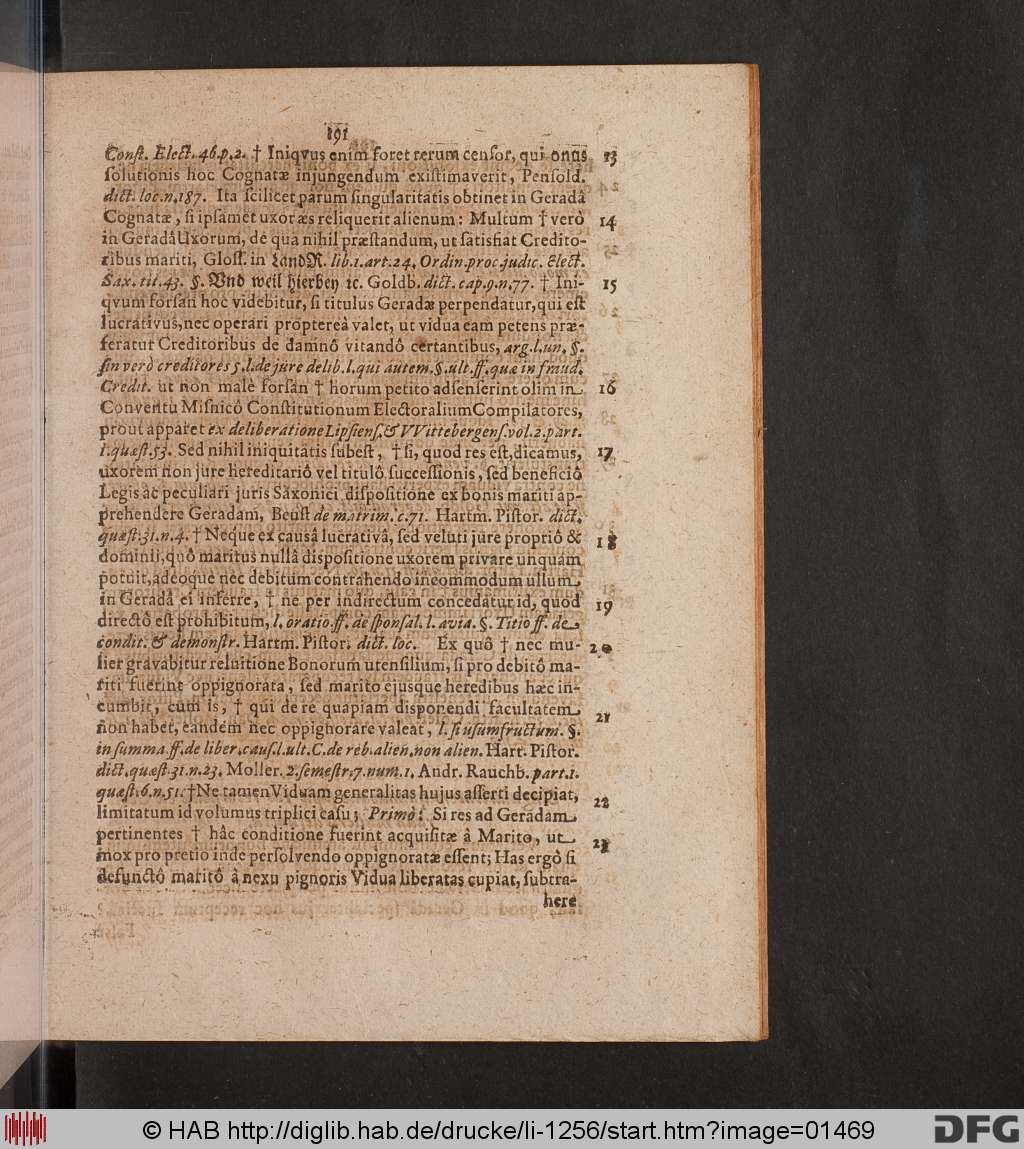 191
Conſt. Elect. 46. p. 2. † Iniqvus enim foret rerum cenſor, qui onus 13
ſolutionis hoc Cognatæ injungendum exiſtimaverit, Penſold.
dict. loc. n. 187. Ita ſcilicet parum ſingularitatis obtinet in Geradâ
Cognatæ, ſi ipſamet uxor æs reliquerit alienum: Multum † verò 14
in Geradâ Uxorum, de qua nihil præſtandum, ut ſatisfiat Credito-
ribus mariti, Gloſſ. in LandR. lib. 1. art. 24. Ordin. proc. judic. Elect.
Sax. tit. 43. §. Vnd weil hierbey ꝛc. Goldb. dict. cap. 9. n. 77. † Ini- 15
qvum forſan hoc videbitur, ſi titulus Geradæ perpendatur, qui eſt
lucrativus, nec operari proptereà valet, ut vidua eam petens præ-
feratur Creditoribus de damnô vitandô certantibus, arg. l. un. §.
ſin verò creditores 5. l. de jure delib. l. qui autem. §. ult. ff. quæ in fraud.
Credit. ut non malè forſan † horum petito adſenſerint olim in 16
Conventu Miſnicô Conſtitutionum Electoralium Compilatores,
prout apparet ex deliberatione Lipſienſ. & VVittebergenſ. vol. 2. part.
1. quæſt. 53. Sed nihil iniquitatis ſubeſt, † ſi, quod res eſt, dicamus, 17
uxorem non jure hereditariô vel titulô ſucceſſionis, ſed beneficiô
Legis ac peculiari juris Saxonici diſpoſitione ex bonis mariti ap-
prehendere Geradam, Beuſt de matrim. c. 71. Hartm. Piſtor. dict.
quæſt. 31. n. 4. † Neque ex causâ lucrativâ, ſed veluti jure propriô & 18
dominii, quô maritus nullâ diſpoſitione uxorem privare unquam
potuit, adeoque nec debitum contrahendo incommodum ullum
in Geradâ ei inferre, † ne per indirectum concedatur id, quod 19
directô eſt prohibitum, l. oratio. ff. de ſponſal. l. avia. §. Titio ff. de
condit. & demonſtr. Hartm. Piſtor. dict. loc. Ex quô † nec mu- 20
lier gravabitur reluitione Bonorum utenſilium, ſi pro debitô ma-
riti fuerint oppignorata, ſed marito ejusque heredibus hæc in-
cumbit, cum is, † qui de re quapiam disponendi facultatem 21
non habet, eandem nec oppignorare valeat, l. ſi uſumfructum. §.
in ſumma. ff. de liber. cauſ. l. ult. C. de reb. alien. non alien. Hart. Piſtor.
dict. quæſt. 31. n. 23. Moller. 2. ſemeſtr. 7. num. 1. Andr. Rauchb. part. 1.
quæſt. 6. n. 51. † Ne tamen Viduam generalitas hujus aſſerti decipiat, 22
limitatum id volumus triplici caſu; Primò: Si res ad Geradam
pertinentes † hâc conditione fuerint acquiſitæ â Marito, ut 23
mox pro pretio inde perſolvendo oppignoratæ eſſent; Has ergò ſi
defunctô maritô à nexu pignoris Vidua liberatas cupiat, ſubtra-
here
© HAB http://diglib.hab.de/drucke/li-1256/start.htm?image=01469
DFG